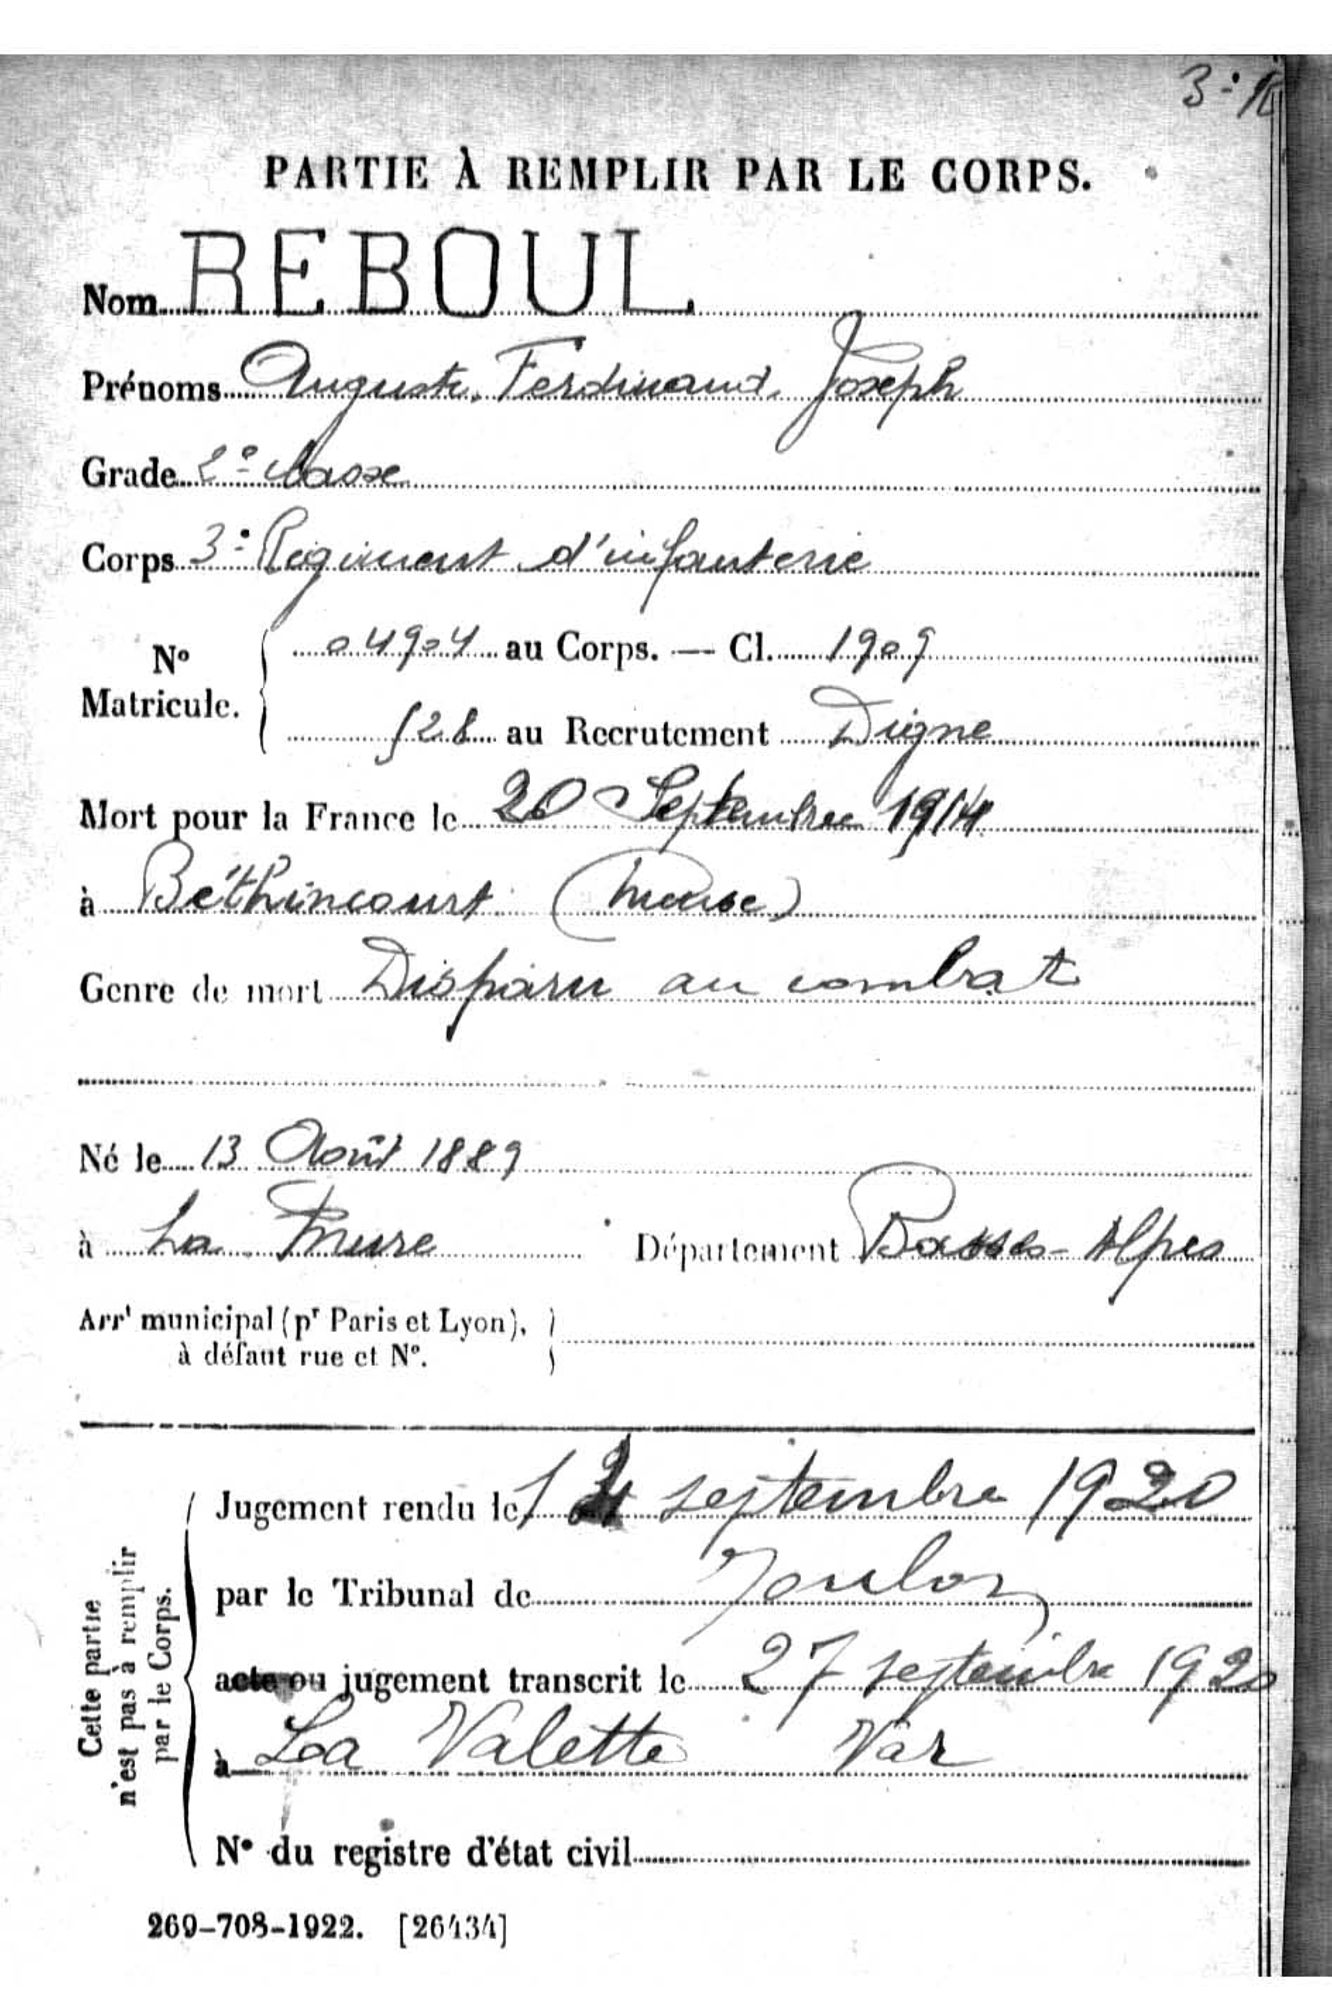 PARTIE À REMPLIR PAR LE CORPS.
Nom REBOUL
Prénoms Auguste, Ferdinand, Joseph
Grade 2e classe
Corps 3e Régiment d'infanterie
No Matricule. 04904 au Corps. — Cl. 1909
528 au Recrutement Digne
Mort pour la France le 20 Septembre 1914
à Béthincourt (Meuse)
Genre de mort Disparu au combat
Né le 13 Août 1889
à La Mure Département Basses-Alpes
Arrt municipal (pr Paris et Lyon),
à défaut rue et No.
Cette partie
n'est pas à remplir
par le Corps.
Jugement rendu le septembre 1920
par le Tribunal de Toulon
acte ou jugement transcrit le 27 septembre 1920
à La Valette Var
No du registre d'état civil
269-708-1922. [26434]